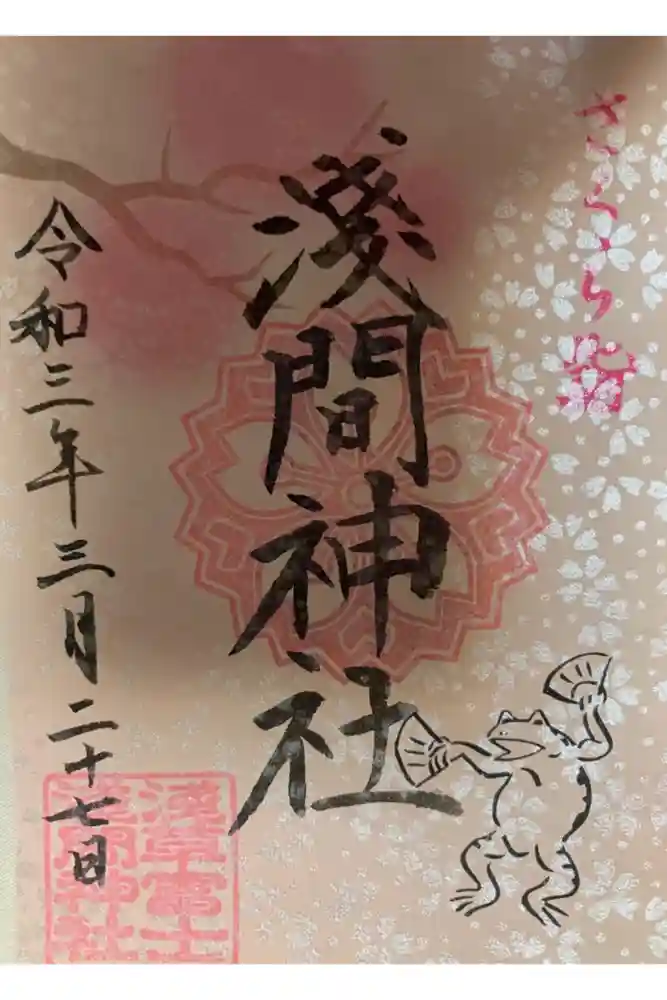 さくら詣
浅間神社
令和三年三月二十七日
淺草富士
淺間神社